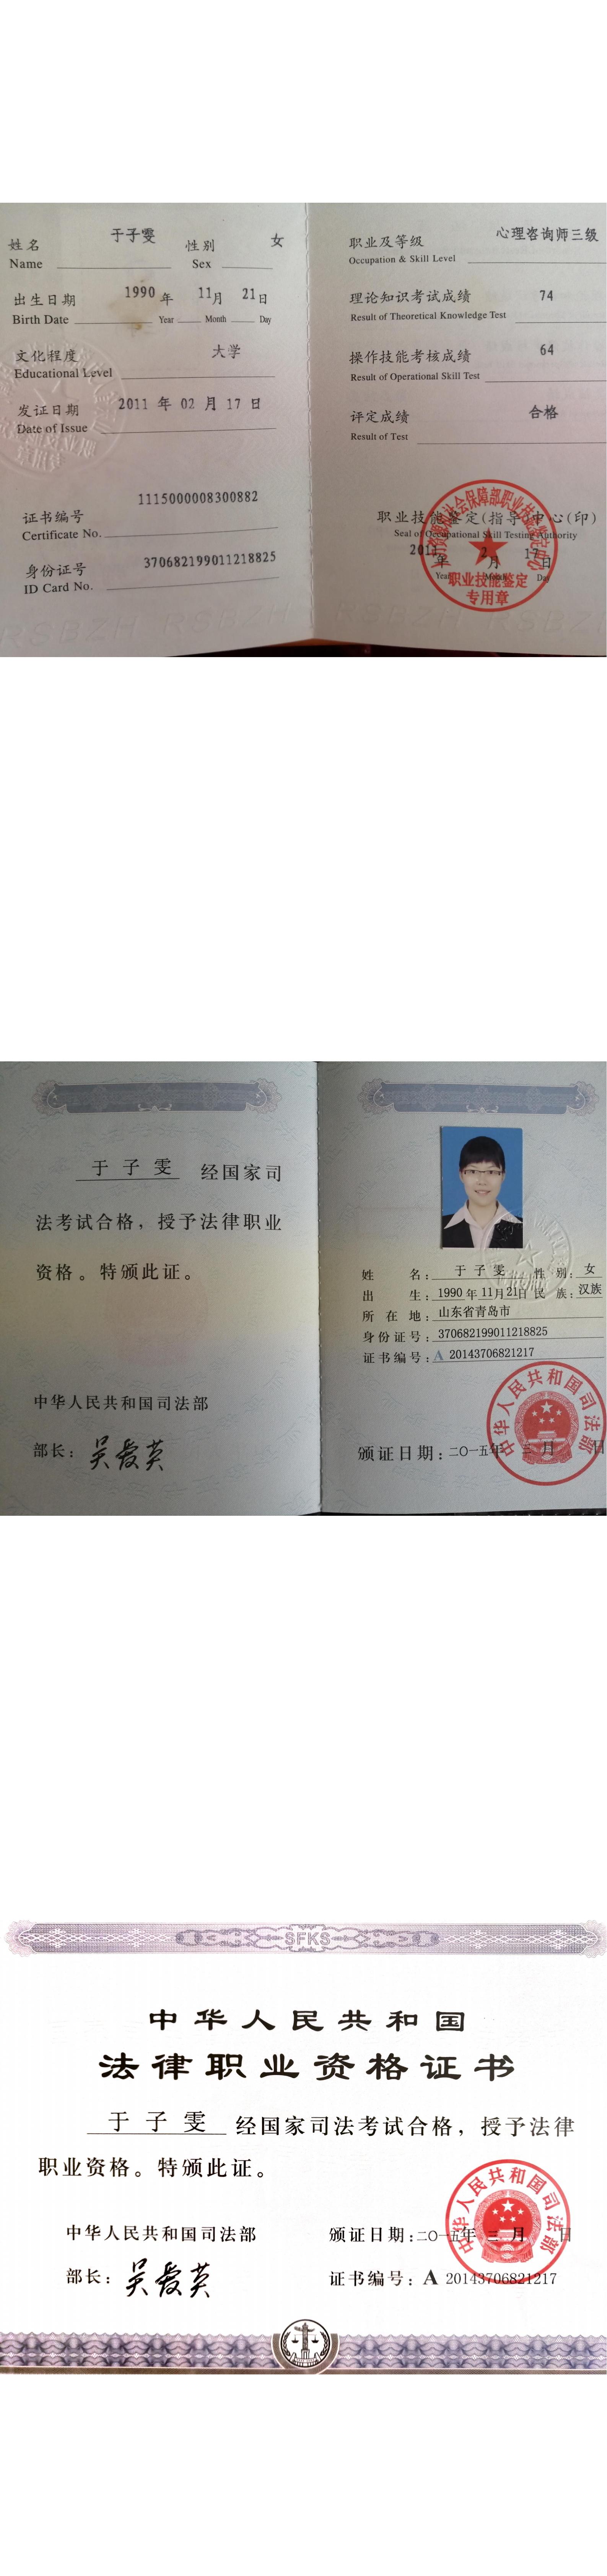 姓名 于子雯 性别 女
Name Sex
出生日期 1990 年 11 月 21 日
Birth Date Year Month Day
文化程度 大学
Educational Level
发证日期 2011 年 02 月 17 日
Date of Issue
证书编号 1115000008300882
Certificate No.
身份证号 370682199011218825
ID Card No.
RSBZH RSBZH
职业及等级 心理咨询师三级
Occupation & Skill Level
理论知识考试成绩 74
Result of Theoretical Knowledge Test
操作技能考核成绩 64
Result of Operational Skill Test
评定成绩 合格
Result of Test
职业技能鉴定(指导)中心(印)
Seal of Occupational Skill Testing Authority
2011 年 2 月 17 日
Year Month Day
职业技能鉴定
专用章
于子雯 经国家司
法考试合格，授予法律职业
资格。特颁此证。
中华人民共和国司法部
部长：吴爱英
姓名：于子雯 性别：女
出生：1990年11月21日 民族：汉族
所在地：山东省青岛市
身份证号：370682199011218825
证书编号：A 20143706821217
颁证日期：二〇一五年 三 月 日
中华人民共和国司法部
SFKS
中华人民共和国
法律职业资格证书
于子雯 经国家司法考试合格，授予法律
职业资格。特颁此证。
中华人民共和国司法部 颁证日期：二〇一五年 三 月 日
部长：吴爱英 证书编号：A 20143706821217
中华人民共和国司法部